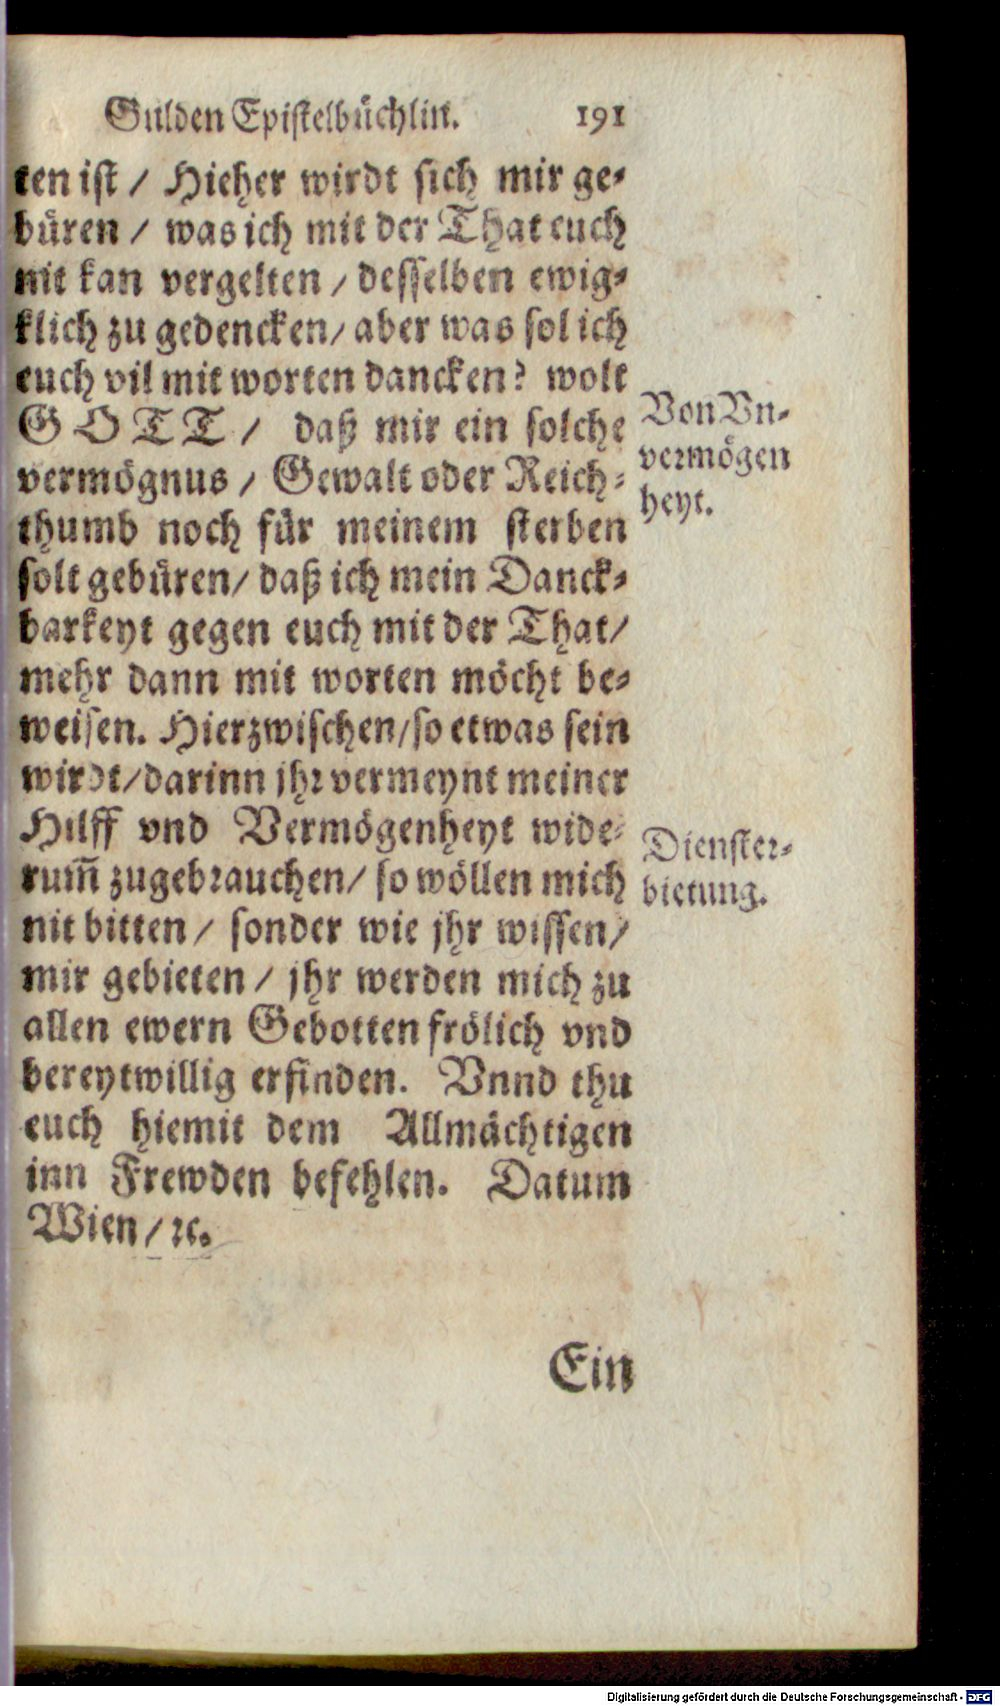 Gulden Epistelbüchlin. 191
ten ist / Hieher wirdt sich mir ge-
büren / was ich mit der That euch
nit kan vergelten / desselben ewig-
klich zu gedencken / aber was sol ich
euch vil mit worten dancken? wolt
GOTT / daß mir ein solche
vermögnus / Gewalt oder Reich-
thumb noch für meinem sterben
solt gebüren / daß ich mein Danck-
barkeyt gegen euch mit der That /
mehr dann mit worten möcht be-
weisen. Hierzwischen / so etwas sein
wirdt / darinn jhr vermeynt meiner
Hilff vnd Vermögenheyt wide-
rum̃ zugebrauchen / so wöllen mich
nit bitten / sonder wie jhr wissen /
mir gebieten / jhr werden mich zu
allen ewern Gebotten frölich vnd
bereytwillig erfinden. Vnnd thu
euch hiemit dem Allmächtigen
inn Frewden befehlen. Datum
Wien / ꝛc.
Von Vn-
vermögen
heyt.
Dienster-
bietung.
Ein
Digitalisierung gefördert durch die Deutsche Forschungsgemeinschaft - DFG